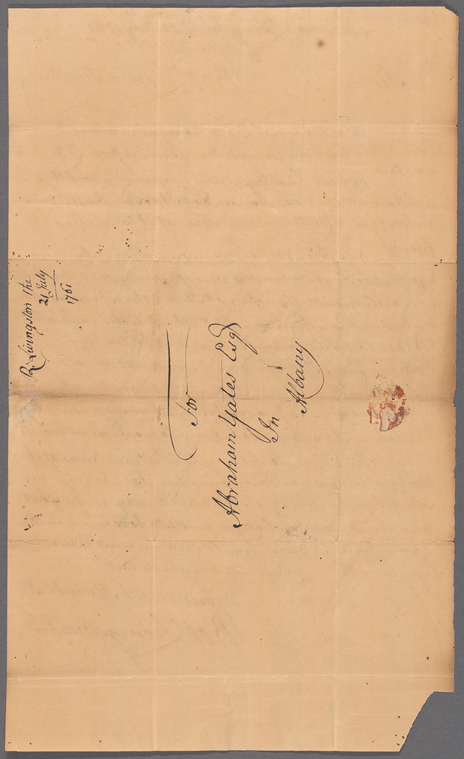 R Livingston the
21 July
1761
For
Abraham Yates Esqr
In
Albany